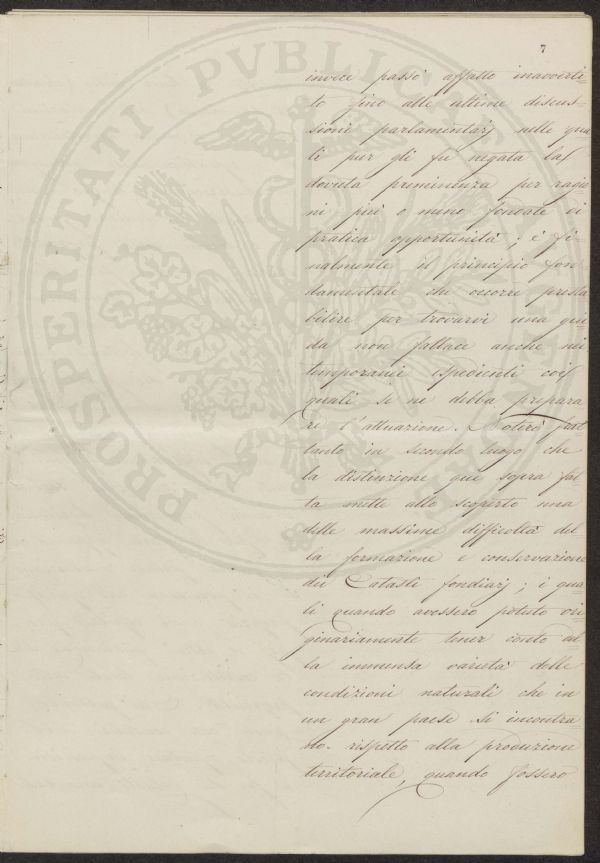 7
invece passò affatto inavverti=
to fino alle ultime discus=
sioni parlamentarj nelle qua
li pur gli fu negata la
dovuta preminenza per ragio
ni più o meno fondate di
pratica opportunità; è fi=
nalmente il principio fon=
damentale che occorre presta
bilire per trovarvi una gui=
da non fallace anche nei
temporanei espedienti coi
quali se ne debba prepara
re l'attuazione. Noterò frat
tanto in secondo luogo che
la distinzione qui sopra fat
ta mette allo scoperto una
delle massime difficoltà del
la formazione e conservazione
dei Catasti fondiarj; i qua=
li quando avessero potuto ori=
ginariamente tener conto del
la immensa varietà delle
condizioni naturali che in
un gran paese si incontra
no rispetto alla produzione
territoriale, quando fossero
PROSPERITATI PVBLICAE